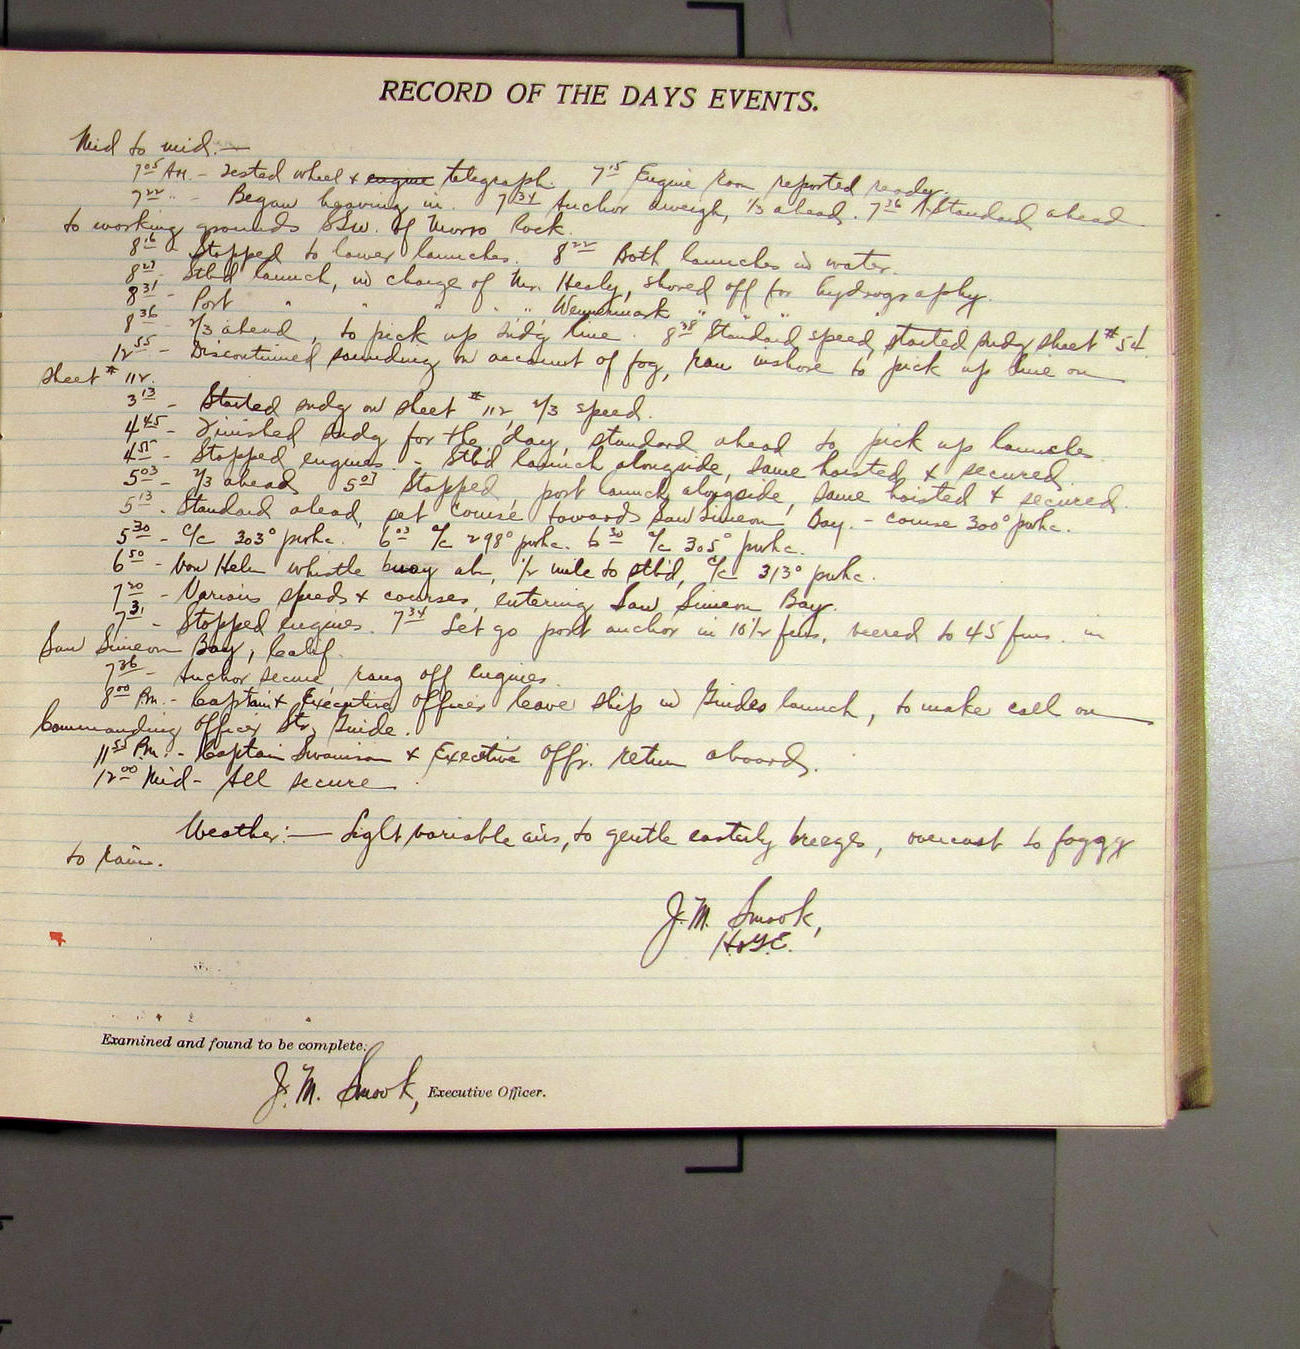 RECORD OF THE DAYS EVENTS.
Mid to mid.—
7⁰⁵ AM. - Tested wheel & engine telegraph. 7¹⁵ Engine room reported ready.
7²² " - Began heaving in. 7³⁴ Anchor aweigh, 1/3 ahead. 7³⁶ Standard ahead
to working grounds SSW. of Morro Rock.
8¹⁶ - Stopped to lower launches. 8²² Both launches in water.
8²⁷ - Stb'd launch, in charge of Mr. Healy, shoved off for hydrography.
8³¹ - Port " " " " Wennermark " " "
8³⁶ - 2/3 ahead, to pick up sndg line. 8³⁸ Standard speed, started sndg sheet #54
12⁵⁵ - Discontinued sounding on account of fog, ran inshore to pick up line on
sheet #112.
3¹³ - Started sndg on sheet #112, 2/3 speed.
4⁴⁵ - Finished sndg for the day, standard ahead to pick up launches.
4⁵⁵ - Stopped engines. - Stb'd launch alongside, same hoisted & secured.
5⁰³ - 2/3 ahead 5⁰⁷ Stopped, port launch alongside, same hoisted & secured.
5¹³ - Standard ahead, set course towards San Simeon Bay. - course 300° pwhc.
5³⁰ - C/c 303° pwhc. 6⁰³ C/c 298° pwhc. 6³⁰ C/c 305° pwhc.
6⁵⁰ - Von Helm whistle buoy abm, 1/2 mile to stb'd, C/c 313° pwhc.
7²⁰ - Various speeds & courses, entering San Simeon Bay.
7³¹ - Stopped engines. 7³⁴ Let go port anchor in 10 1/2 fms, veered to 45 fms. in
San Simeon Bay, Calif.
7³⁶ - Anchor secure, rang off engines.
8⁰⁰ P.M. - Captain & Executive officer leave ship in Guides launch, to make call on
Commanding Officer Str. Guide.
11⁵⁵ P.M. - Captain Swainson & Exective Offr. return aboard.
12⁰⁰ Mid - All secure
Weather:— Light variable airs, to gentle easterly breezes, overcast to foggy
to rain.
J. M. Smook,
H.&G.E.
Examined and found to be complete:
J. M. Smook, Executive Officer.